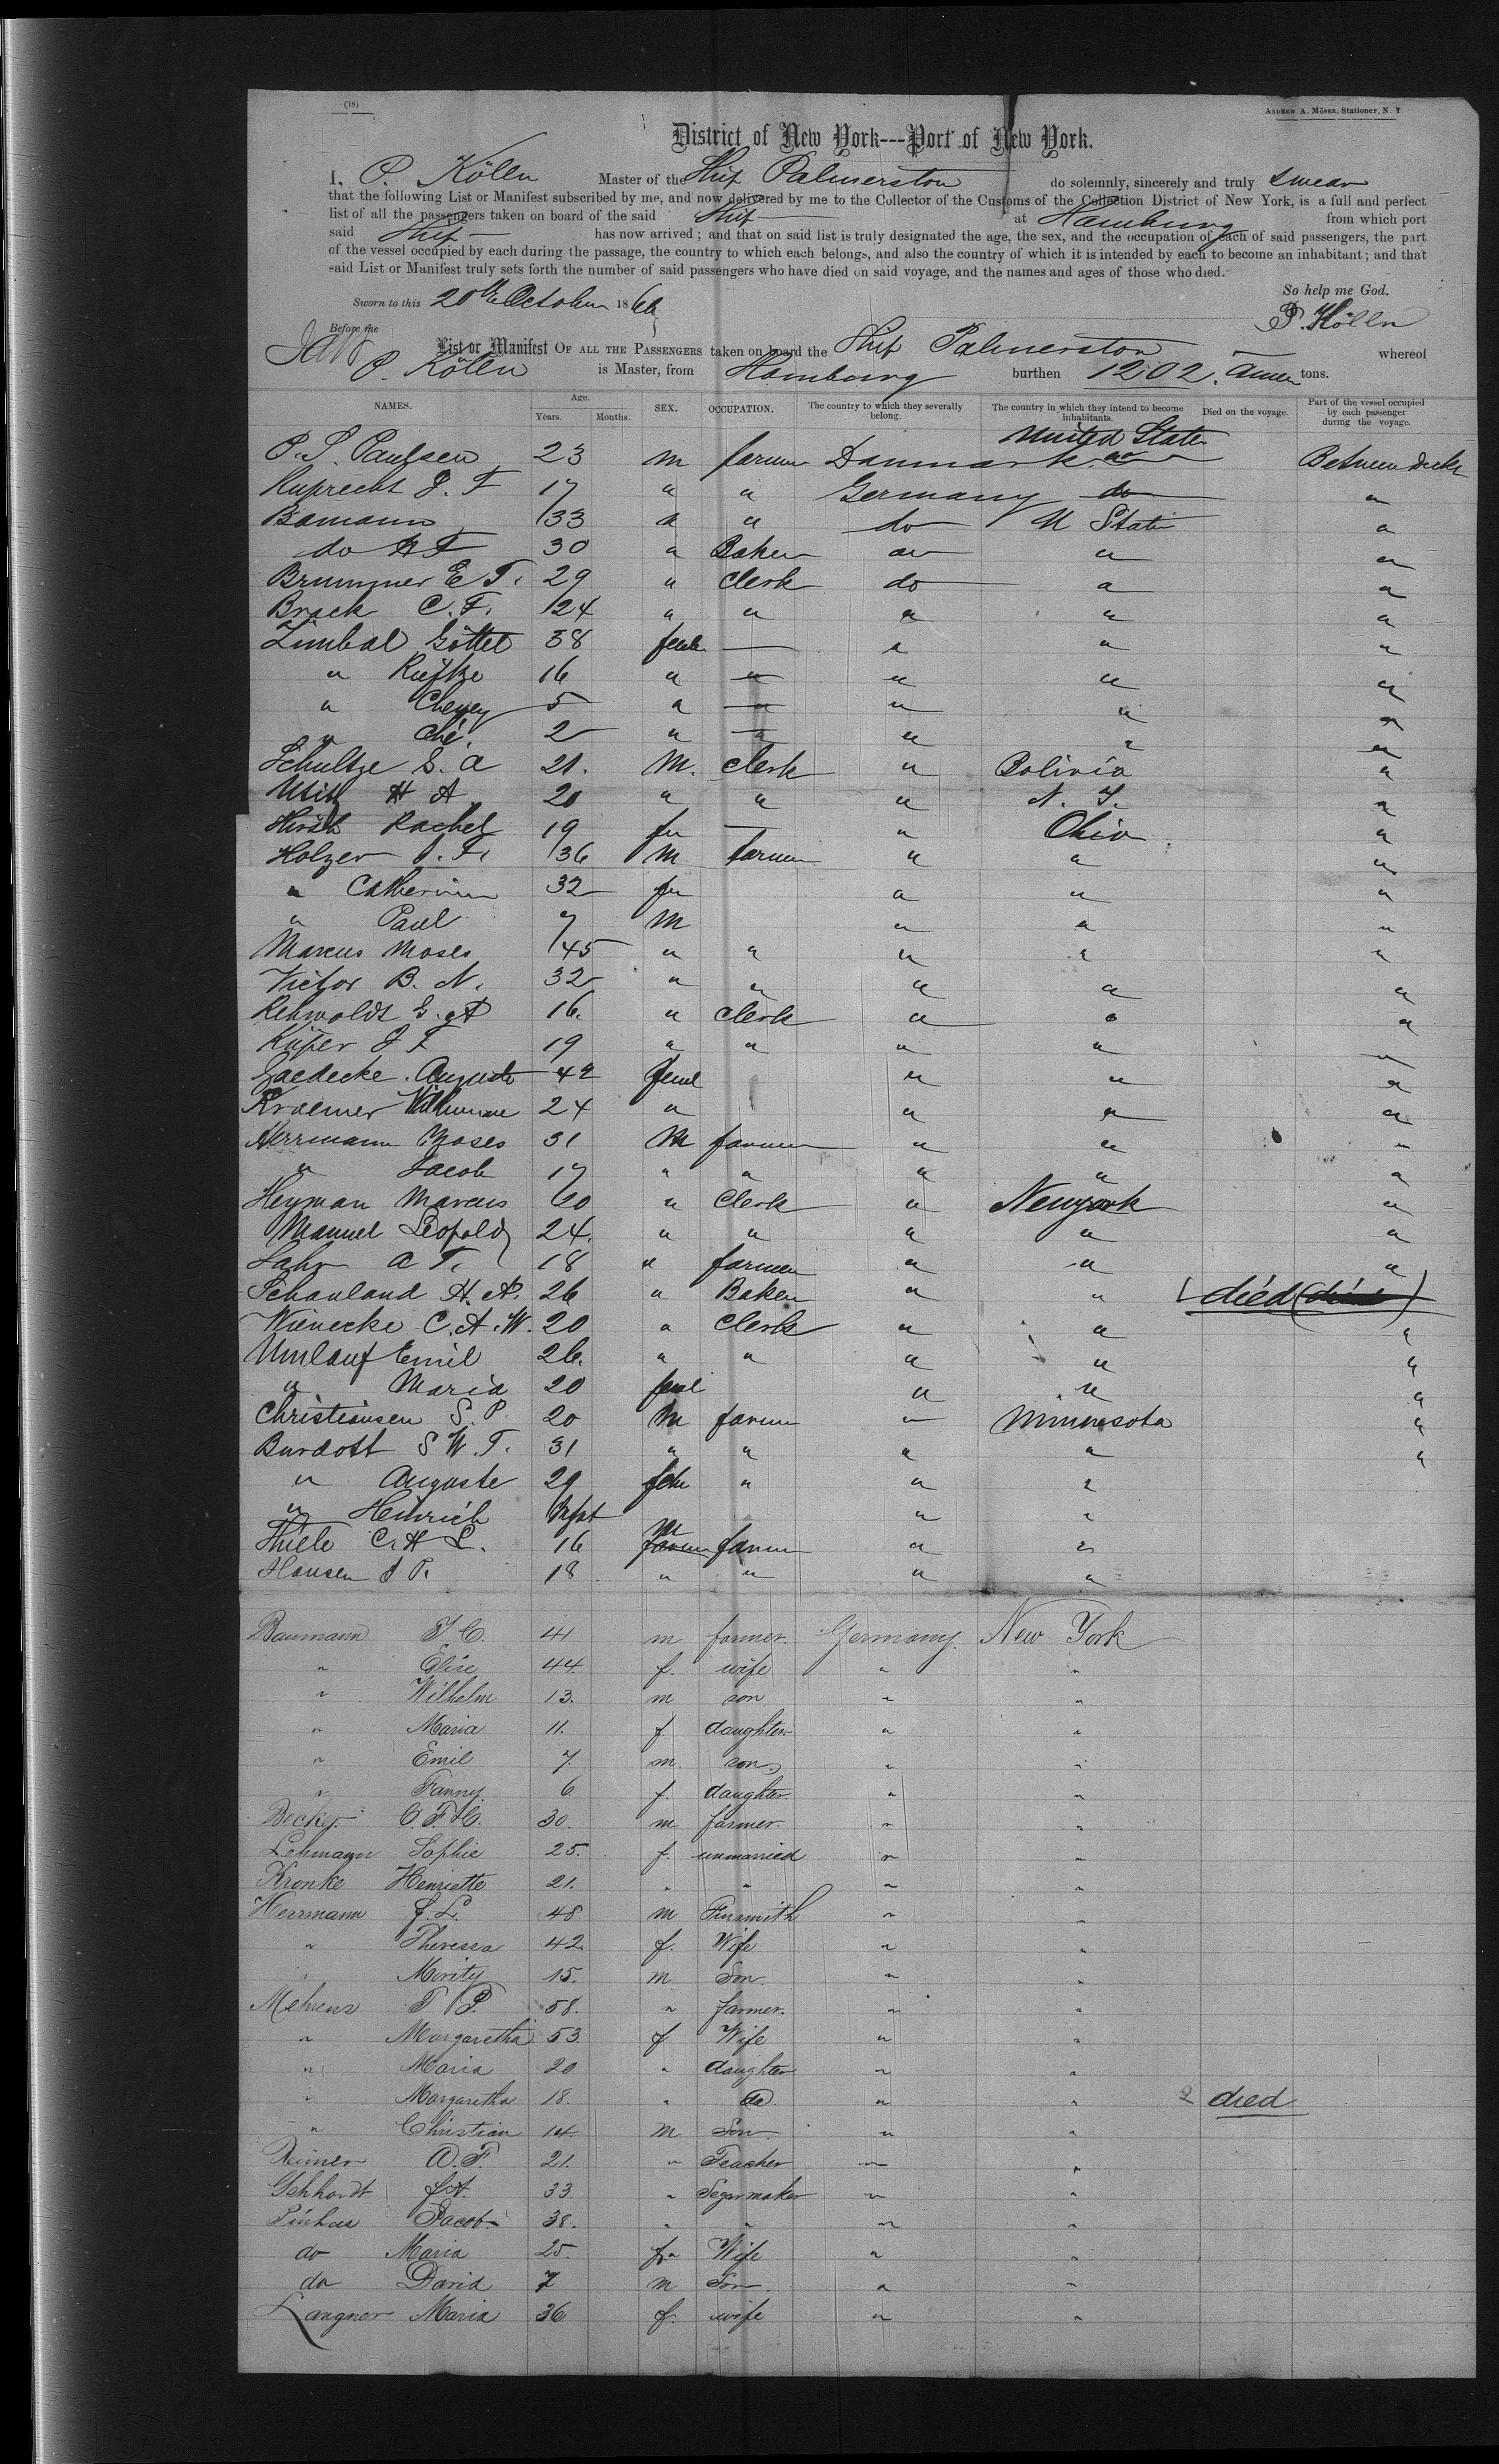 (18)
ANDREW A. MÖSER, Stationer, N. Y
District of New York---Port of New York.
I, P. Kölln Master of the Ship Palmerston do solemnly, sincerely and truly swear
that the following List or Manifest subscribed by me, and now delivered by me to the Collector of the Customs of the Collection District of New York, is a full and perfect
list of all the passengers taken on board of the said Ship at Hamburg from which port
said Ship has now arrived; and that on said list is truly designated the age, the sex, and the occupation of each of said passengers, the part
of the vessel occupied by each during the passage, the country to which each belongs, and also the country of which it is intended by each to become an inhabitant; and that
said List or Manifest truly sets forth the number of said passengers who have died on said voyage, and the names and ages of those who died.
So help me God.
Sworn to this 20th October 186
P. Kölln
Before me
List or Manifest OF ALL THE PASSENGERS taken on board the Ship Palmerston whereof
P. Kölln is Master, from Hamburg burthen 1202. Amer tons.
NAMES. Age. Years. Months. SEX. OCCUPATION. The country to which they severally belong. The country in which they intend to become inhabitants. Died on the voyage. Part of the vessel occupied by each passenger during the voyage.
United State
P. S. Paulsen 23 m farmer Danmark Between decks
Ruprecht J. F 17 " " Germany do "
Bamann 33 " " do U State "
do H F 30 " Baker do " "
Brummer E T. 29 " Clerk do " "
Brack C. F. 24 " " " " "
Zimbal Göttel 38 feml — " " "
" Riefke 16 " " " " "
" 5 " " " " "
" Che. 2 " " " " "
Schultze S. A 21. M. Clerk " Bolivia "
H A 20 " " " N. Y. "
Hirsch Rachel 19 fe — " Ohio "
Holzer J. F. 36 M farmer " " "
" Catherine 32 fe " " "
" Paul 7 M " " "
Marcus Moses 45 " " " " "
Victor B. N. 32 " " " " "
Rehwoldt G. A 16. " Clerk " " "
Küper J F 19 " " " " "
Gaedecke Auguste 42 feml " " "
Kraemer Wilhelmine 24 " " " "
Herrmann Moses 31 M farmer " " "
" Jacob 17 " " " " "
Heyman Marcus 60 " Clerk " Newyork "
Manuel Leopold 24. " " " " "
Lahr A T. 18 " farmer " " "
Schauland H. A. 26 " Baker " " died
Wienecke C. A. W. 20 " Clerk " " "
Umlauf Emil 26. " " " " "
" Maria 20 feml " " "
Christiansen S. P. 20 M farmer " Minnesota "
Burdott S W. T. 31 " " " " "
" Auguste 29 feml " " "
" Heinrich Infnt " "
Thiele C. H L. 16 M farmer " "
Hansen J P. 18 " " " "
Baumann T C. 41 m farmer. Germany. New York
" Elise 44 f. wife " "
" Wilhelm 13. m son " "
" Maria 11. f. daughter " "
" Emil 7. m. son " "
" Fanny. 6 f. daughter. " "
Becker C. F. C. 30. m farmer. " "
Lehmann Sophie 25. f. unmarried " "
Kronke Henriette 21. " " " "
Herrmann J. L. 48 m Tinsmith " "
" Theressa 42. f. Wife " "
" Moritz 15. m Son. " "
Mehrens T P. 58. " farmer. " "
" Margaretha 53 f Wife " "
" Maria 20 " daughter " "
" Margaretha 18. " do. " " 2 died
" Christian 14. m Son " "
Reimer A. F. 21. " Teacher " "
Gehhardt J. A. 33 " Segarmaker " "
Pinhas Jacob 38. " " " "
do Maria 25. f Wife " "
do David 7 m Son. " "
Langner Maria 36 f. wife " "